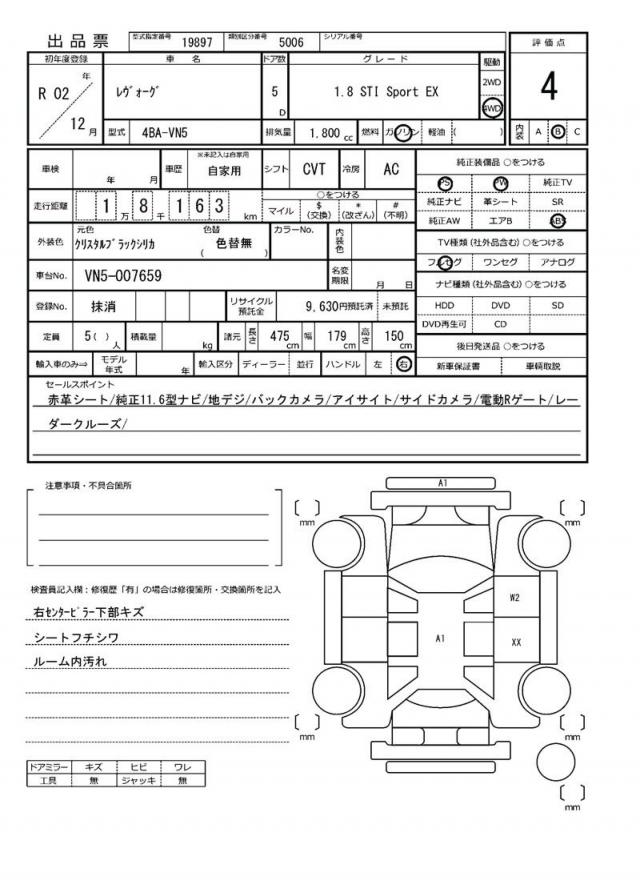 出品票 型式指定番号 19897 類別区分番号 5006 シリアル番号
初年度登録 車名 ドア数 グレード 駆動 評価点
R 02 年 12 月 ﾚｳﾞｫｰｸﾞ 5 D 1.8 STI Sport EX 2WD 4WD 4
型式 4BA-VN5 排気量 1,800 cc 燃料 ガソリン 軽油 ( ) 内装 A B C
車検 年 月 車歴 ※未記入は自家用 自家用 シフト CVT 冷房 AC 純正装備品 ○をつける
PS PW 純正TV
走行距離 1 万 8 千 1 6 3 km ○をつける マイル $ (交換) * (改ざん) # (不明) 純正ナビ 革シート SR
純正AW エアB ABS
外装色 元色 ｸﾘｽﾀﾙﾌﾞﾗｯｸｼﾘｶ 色替 ( 色替無 ) カラーNo. 内装色 TV種類 (社外品含む) ○をつける
フルセグ ワンセグ アナログ
車台No. VN5-007659 名変期限 月 日 ナビ種類 (社外品含む) ○をつける
登録No. 抹消 リサイクル預託金 9,630円預託済 未預託 HDD DVD SD
DVD再生可 CD
定員 5( ) 人 積載量 kg 諸元 長さ 475 cm 幅 179 cm 高さ 150 cm 後日発送品 ○をつける
輸入車のみ⇒ モデル年式 年 輸入区分 ディーラー 並行 ハンドル 左 右 新車保証書 車輌取説
セールスポイント
赤革シート/純正11.6型ナビ/地デジ/バックカメラ/アイサイト/サイドカメラ/電動Rゲート/レー
ダークルーズ/
注意事項・不具合箇所
検査員記入欄：修復歴「有」の場合は修復箇所・交換箇所を記入
右ｾﾝﾀｰﾋﾟﾗｰ下部キズ
シートフチシワ
ルーム内汚れ
A1
mm
mm
W2
A1
XX
mm
mm
mm
ドアミラー キズ ヒビ ワレ
工具 無 ジャッキ 無